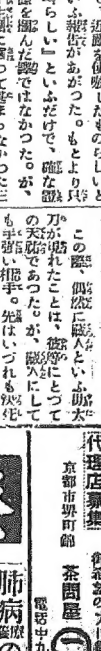 いふ報告があがつた。もとより只
らしい』といふだけで、確な證
を掴んだ譯ではなかつた。が、
なかつた三
この際、偶然に職人といふ助太
刀が現れたことは、彼等にとつて
の天祐であつた。が、職人にして
も手強い相手。先はいづれも決死
代理店募集
京都市堺町錦
茶問屋
電話中九
肺病